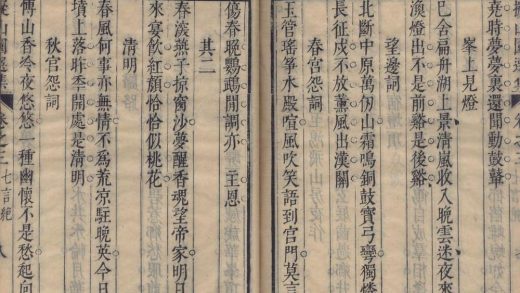 堯時夢夢裏還聞動鼓鼙
峯上見燈
已舍扁舟湖上景清風收入曉雲迷夜來
漁燈出不是前谿是後谿
望邊詞
北斷中原萬仞山霜鳴銅鼓寶弓彎獨憐
長征戍不放薰風出漢關
春宮怨詞
玉管瑤箏水殿喧風吹笑語到宮門莫言
傷春賜鸚鵡閒調亦主恩
其二
春淺燕子掠窗沙夢醒香魂望帝家明日
來宴飲紅顏恰恰似桃花
清明
春風何事亦無情不爲荒凉駐晚英今日
墳上落昨季開處是清明
秋宮怨詞
博山香冷夜悠悠一種幽懷不是愁起向
卷之三
七言絶
八